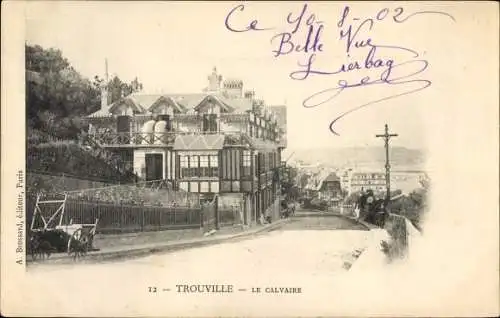 Ce 19-8-02
Belle Vue
Lierbag
A. Bossard, éditeur, Paris
12 — TROUVILLE — LE CALVAIRE